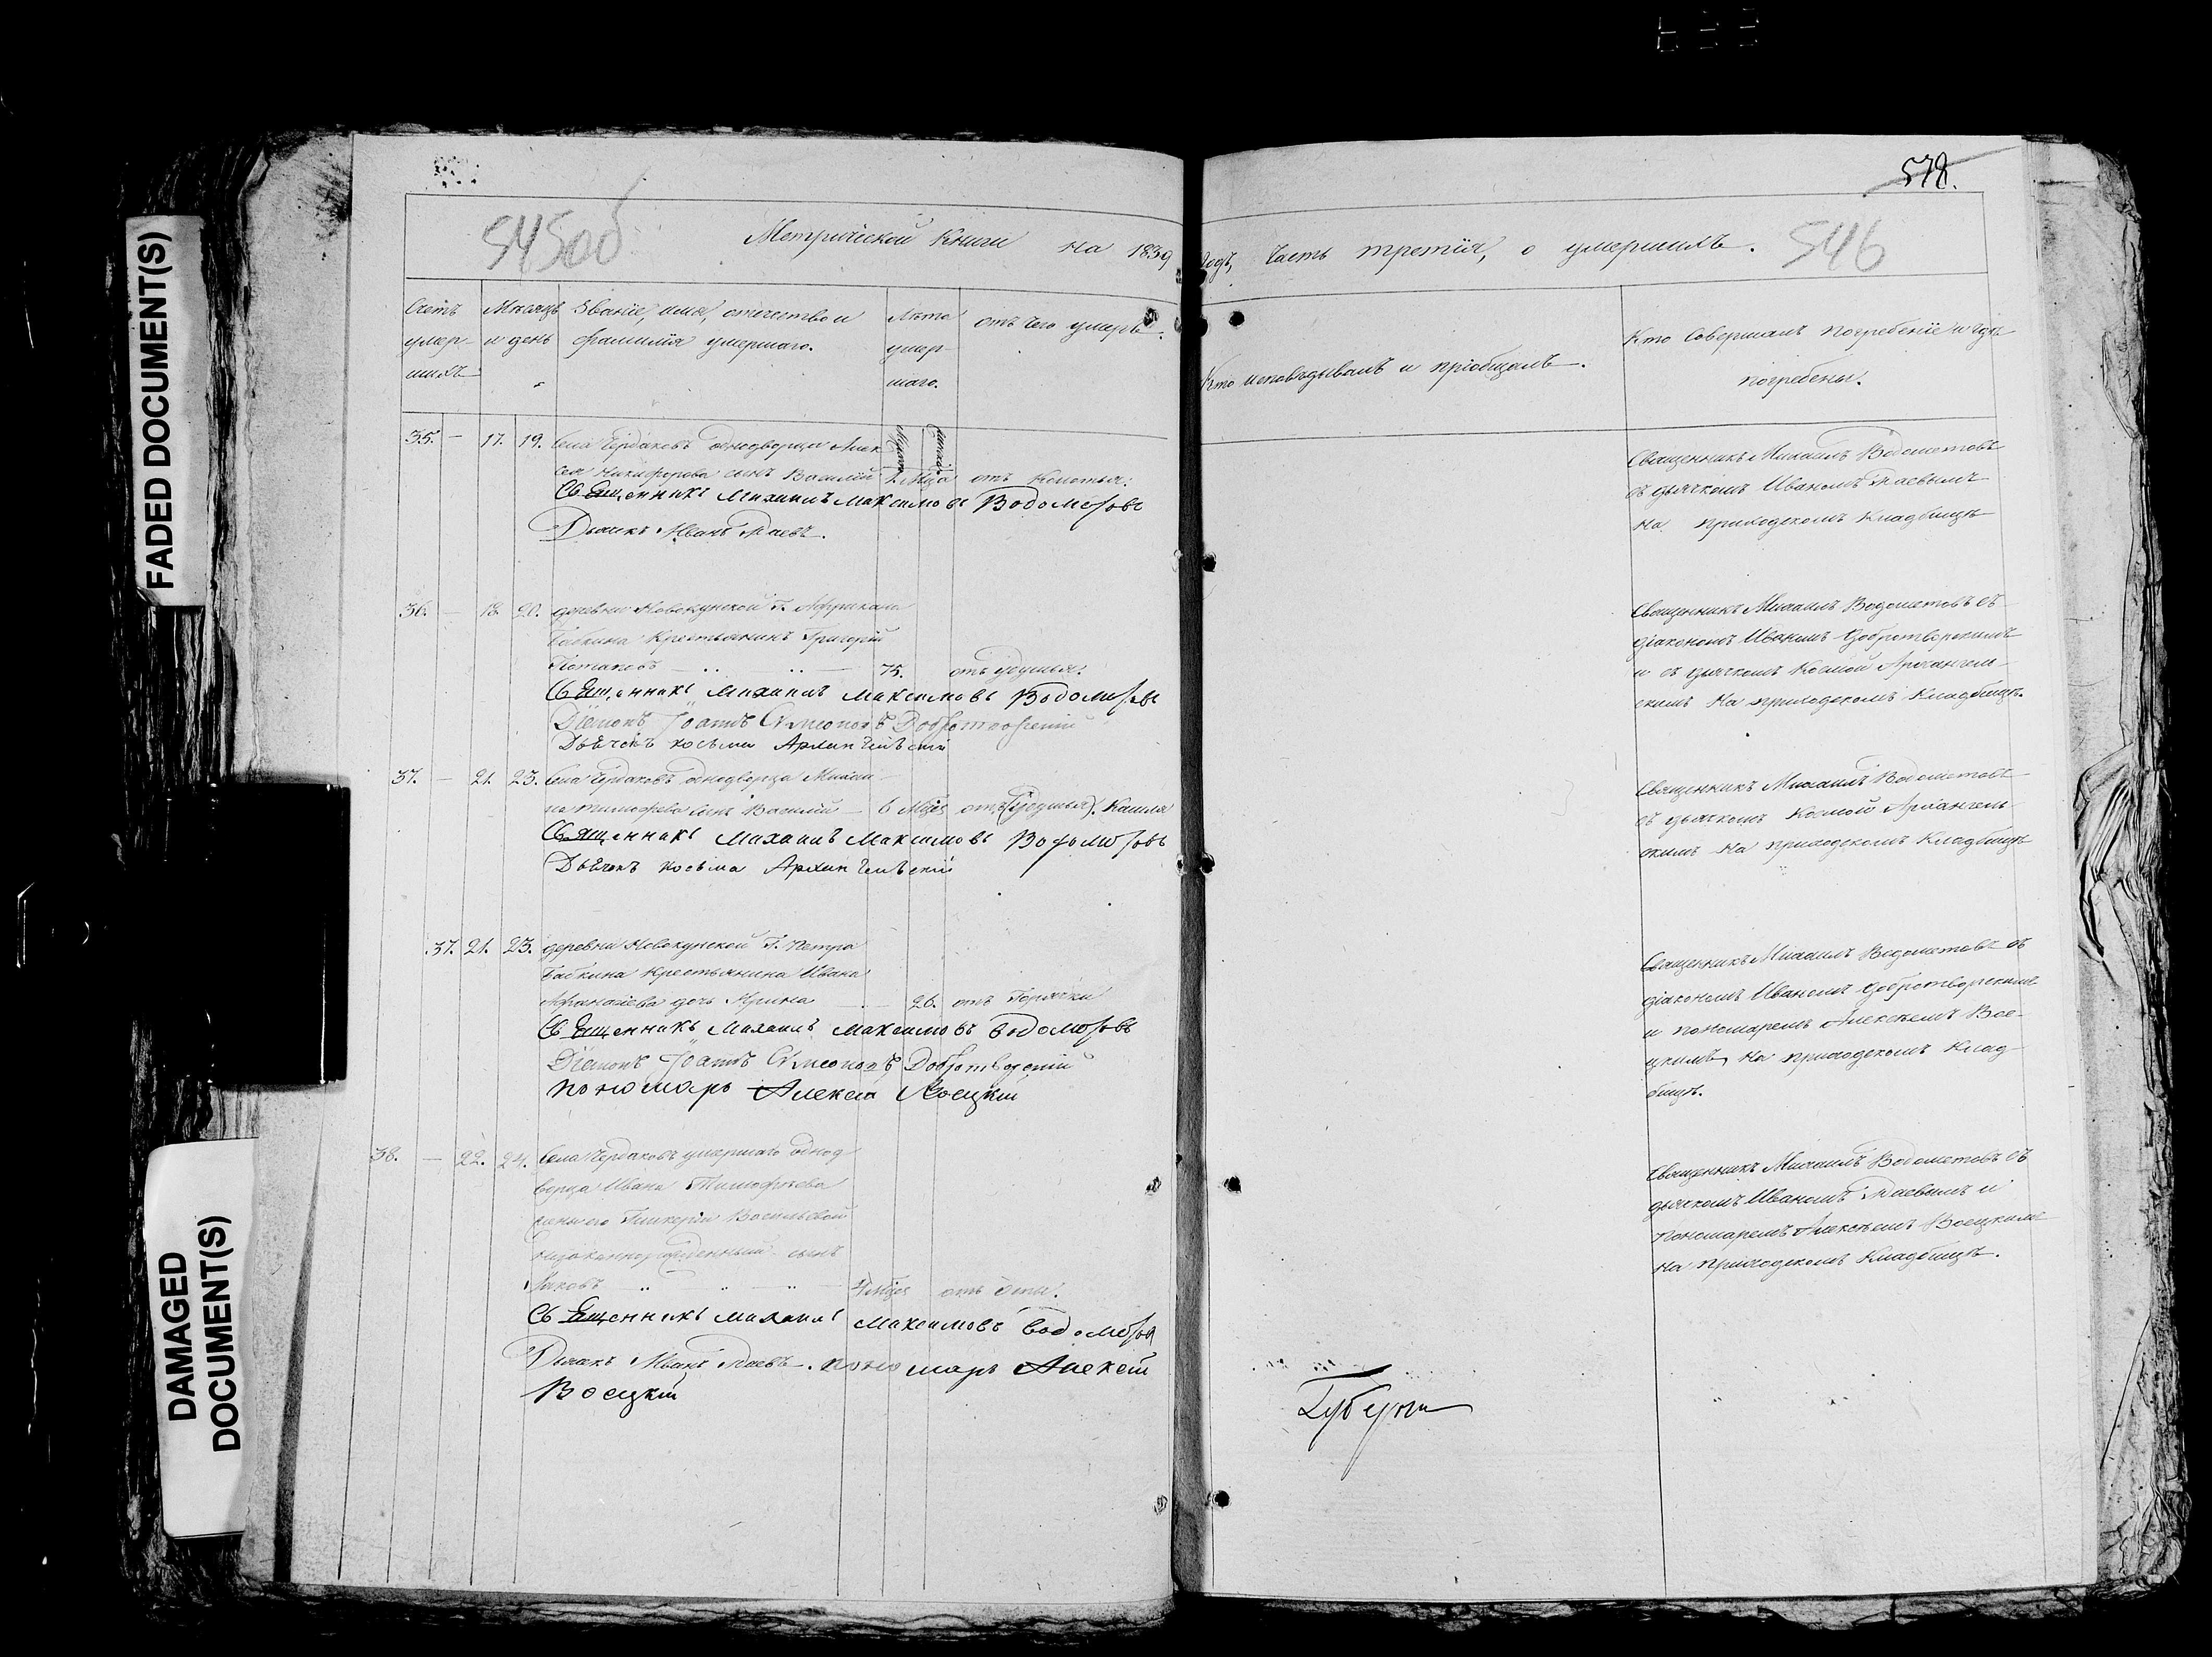 FADED DOCUMENT(S)
DAMAGED DOCUMENT(S)
578.
545об
546
Метрической Книги на 1839
годъ, Часть третія, о умершихъ.
Счетъ умер- шихъ
Мѣсяцъ и день
Званіе, имя, отчество и фамилія умершаго.
Лѣта умер- шаго.
отъ чего умеръ.
Кто исповѣдывалъ и пріобщалъ.
Кто Совершалъ погребеніе и гдѣ погребены.
35. — 17. 19. Села Чердаковъ однодворца Алек
сея Никифорова сынъ Василій
Священникъ Михаилъ Максимовъ Водометовъ
Дьячекъ Иванъ
Священникъ Михаилъ Водометовъ
съ дьячкомъ Иваномъ
на приходскомъ Кладбищѣ
36. — 18 20. деревни Г. Африкана
Бабкина Крестьянинъ Григорій
75. отъ удушья.
Священникъ Михаилъ Максимовъ Водометовъ
Діаконъ Іоаннъ Симеоновъ Добротворскій
Дьячекъ Косьма Архангельскій
Священникъ Михаилъ Водометовъ съ
діакономъ Иваномъ Добротворскимъ
и съ дьячкомъ Космой Архангель-
скимъ на приходскомъ Кладбищѣ.
37. — 21. 23. Села Чердаковъ однодворца Михаи
ла Тимофѣева сынъ Василій — 6 Мцѣ отъ (удушья). Кашля
Священникъ Михаилъ Максимовъ Водометовъ
Дьячекъ Косьма Архангельскій
Священникъ Михаилъ Водометовъ
съ дьячкомъ Космой Архангель
скимъ на приходскомъ Кладбищѣ
37. 21. 23. деревни Г. Петра
Бабкина Крестьянина Ивана
Афанасіева дочь Ирина — 26. отъ Горячки
Священникъ Михаилъ Максимовъ Водометовъ
Діаконъ Іоаннъ Симеоновъ Добротворскій
пономарь Алексей Воецкій
Священникъ Михаилъ Водометовъ съ
діакономъ Иваномъ Добротворскимъ
и пономаремъ Алексѣемъ Вое-
цкимъ, на приходскомъ Клад-
бищѣ.
38. — 22. 24. Села Чердаковъ умершаго однод
ворца Ивана Тимофѣева
жены его Гликеріи Васильевой
незаконнорожденный сынъ
Яковъ отъ оспы.
Священникъ Михаилъ Максимовъ Водометов
Дьячекъ Иванъ пономарь Алексей
Воецкій
Священникъ Михаилъ Водометовъ съ
дьячкомъ Иваномъ и
пономаремъ Алексѣемъ Воецкимъ
на приходскомъ Кладбищѣ.